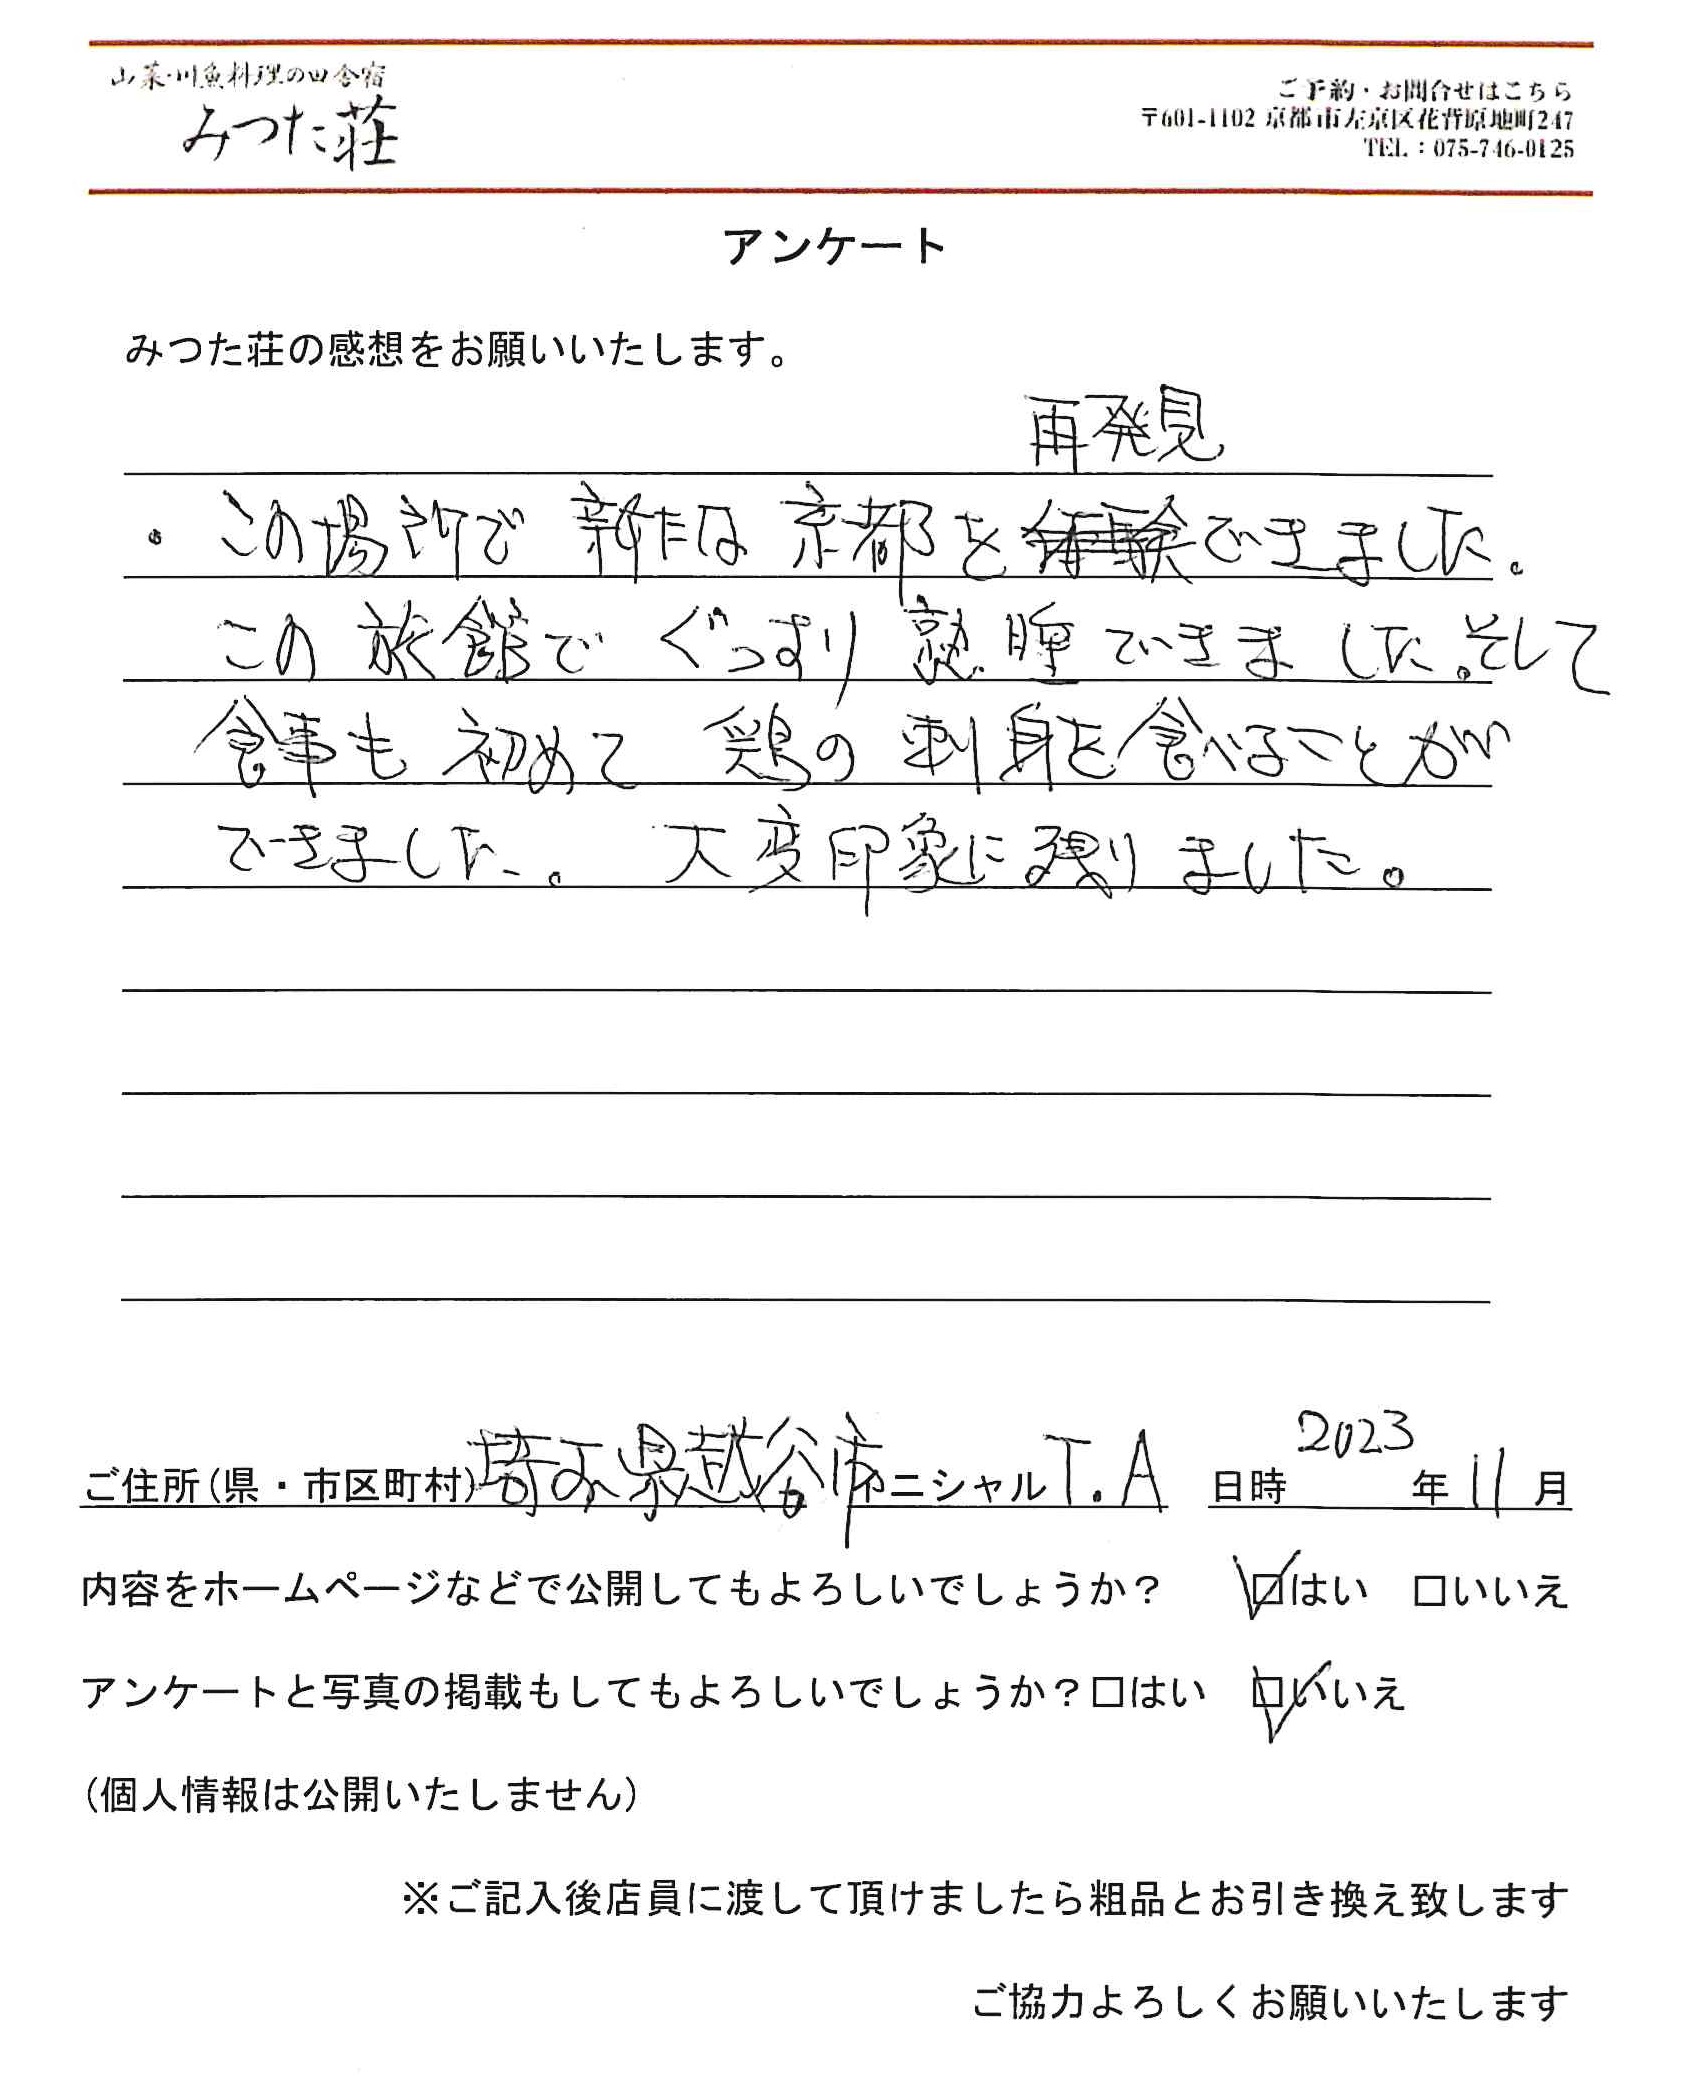 山菜・川魚料理の田舎宿
みつた荘
ご予約・お問合せはこちら
〒601-1102 京都市左京区花背原地町247
TEL：075-746-0125
アンケート
みつた荘の感想をお願いいたします。
再発見
・この場所で新たな京都を体験できました。
この旅館でぐっすり熟睡できました。そして
食事も初めて鶏の刺身を食べることが
できました。大変印象に残りました。
ご住所(県・市区町村)埼玉県越谷市 イニシャル T.A 日時 2023年11月
内容をホームページなどで公開してもよろしいでしょうか？ ☑はい □いいえ
アンケートと写真の掲載もしてもよろしいでしょうか？□はい ☑いいえ
(個人情報は公開いたしません)
※ご記入後店員に渡して頂けましたら粗品とお引き換え致します
ご協力よろしくお願いいたします